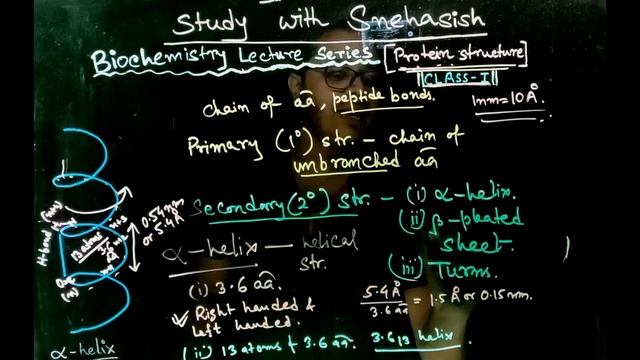 Study with Snehasish
Biochemistry Lecture Series [Protein structure]
CLASS-I
chain of aa, peptide bonds. 1nm=10Å.
Primary (1°) str. - chain of
unbranched aa
Secondary (2°) str. - (i) α-helix.
(ii) β-pleated
sheet.
(iii) Turns.
α-helix - helical
str.
(i) 3.6 aa.
Right handed &
Left handed.
5.4Å / 3.6 aa = 1.5Å or 0.15nm.
(ii) 13 atoms & 3.6 aa. 3.6₁₃ helix.
0.54nm
or 5.4Å
H-bond
13 atoms
3.6
(n)
α-helix